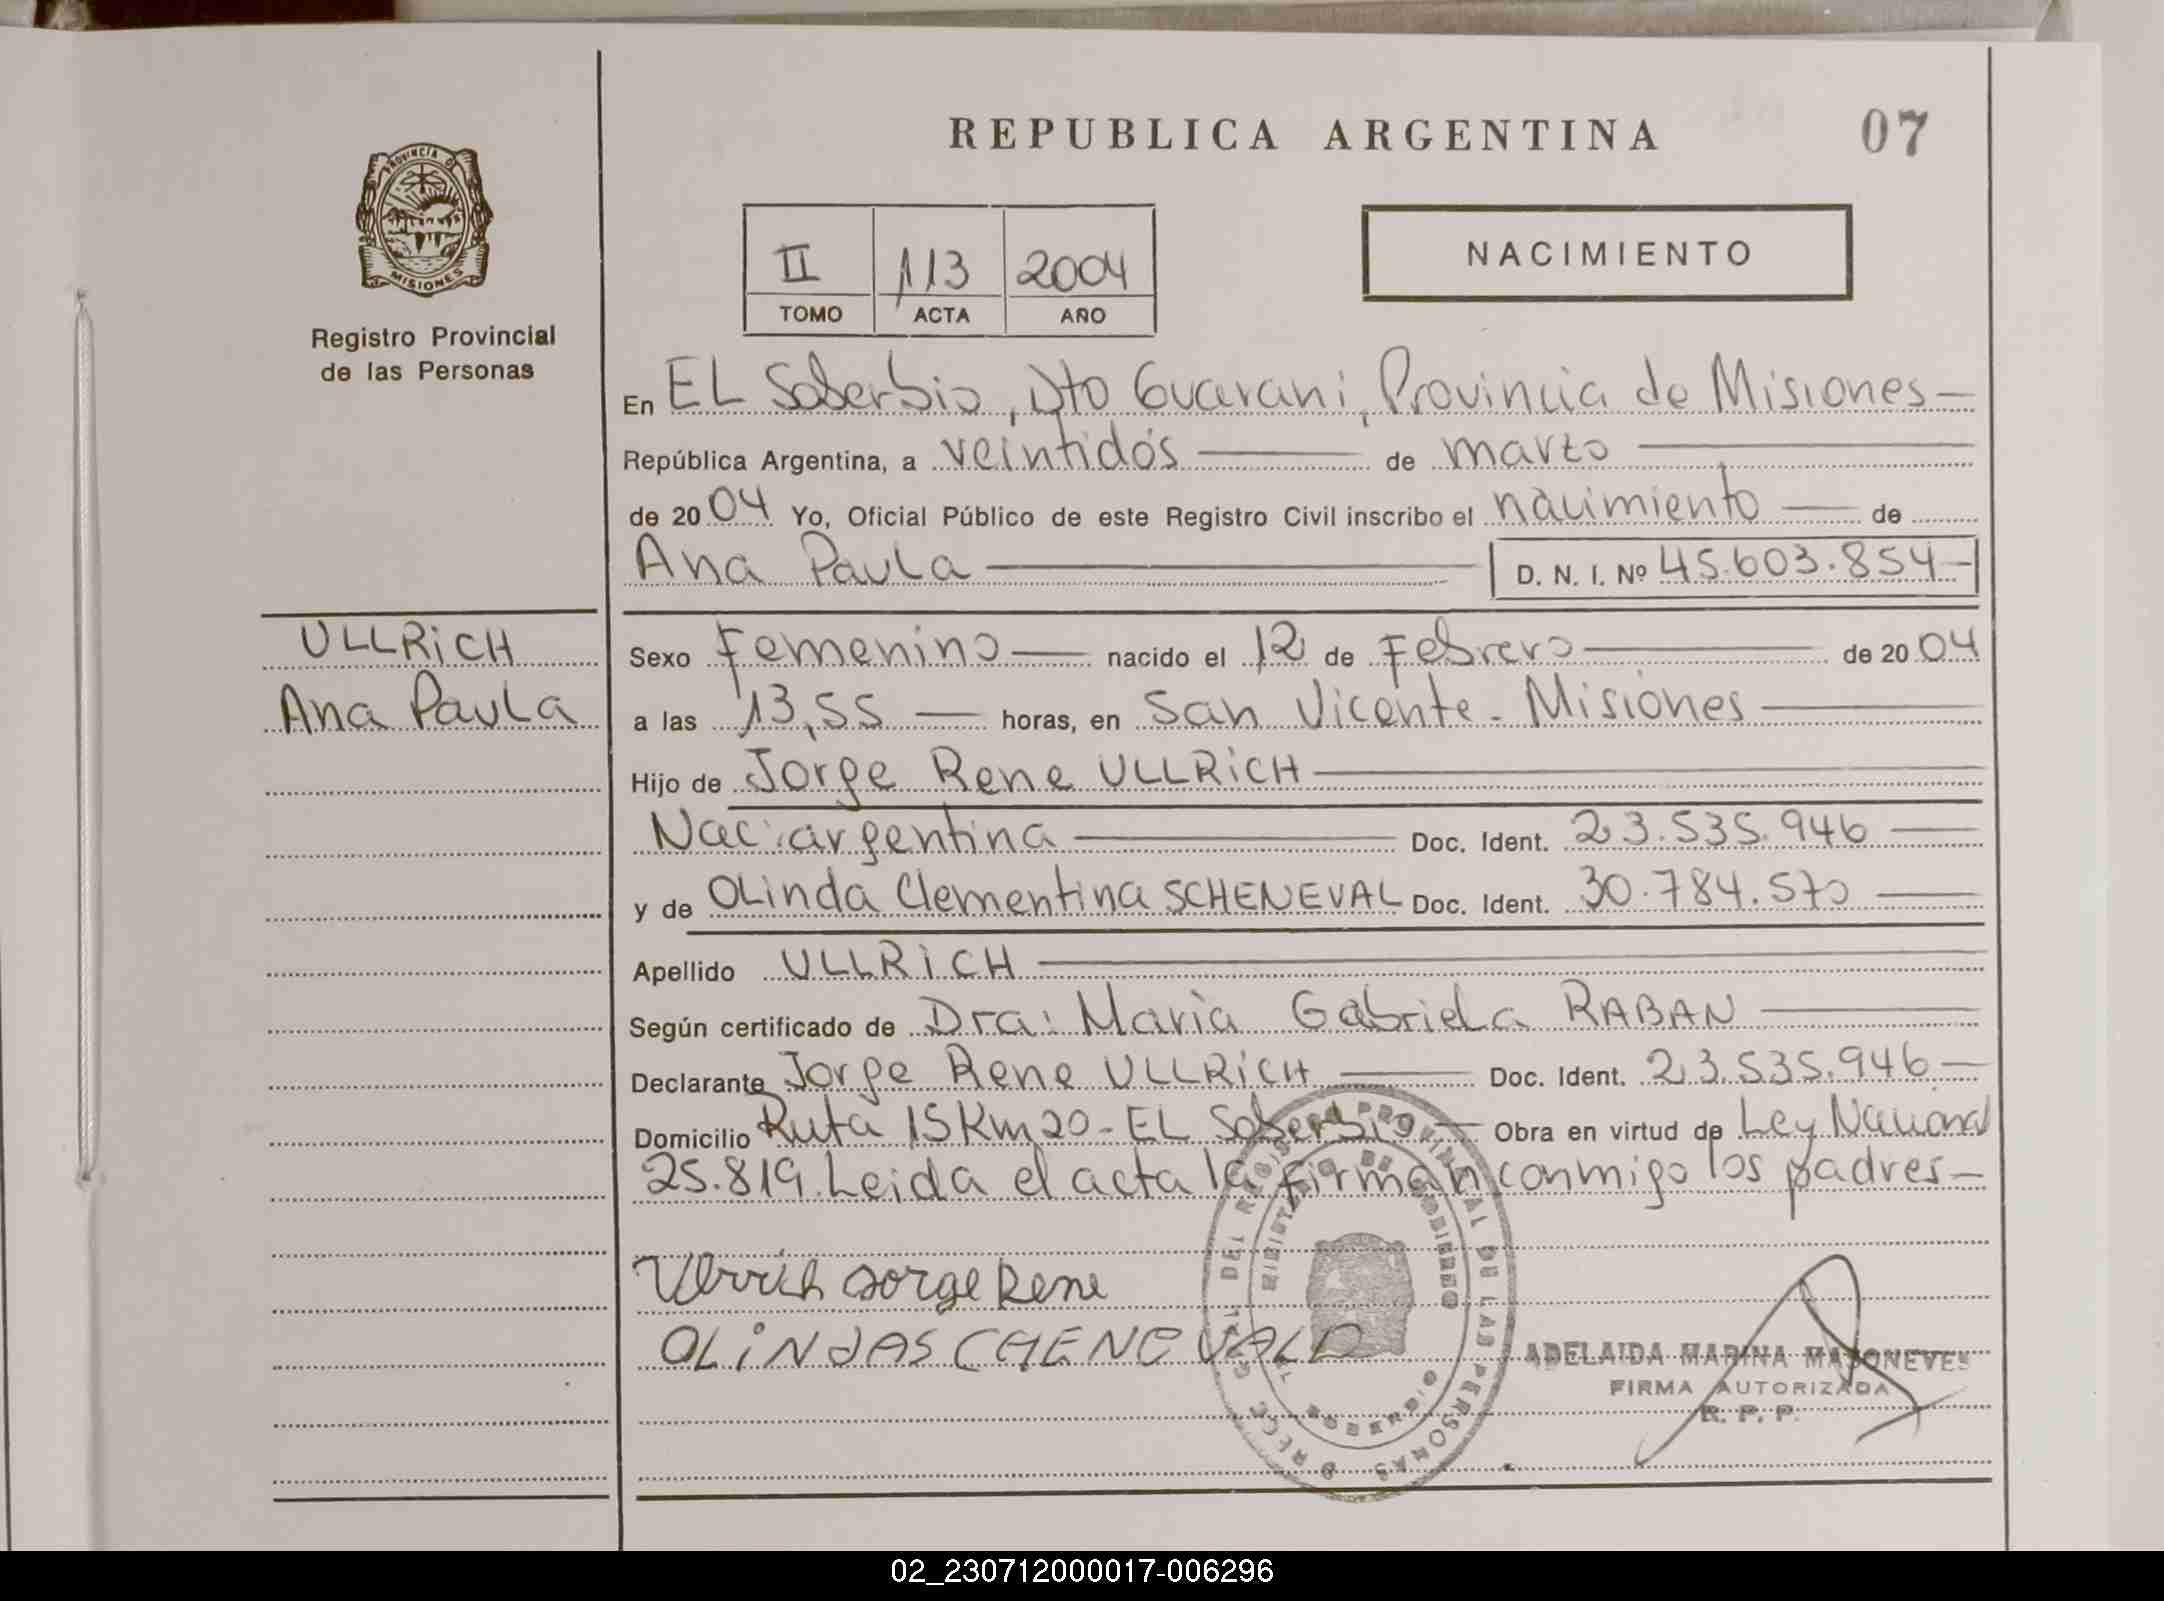 REPUBLICA ARGENTINA
07
PROVINCIA D
MISIONES
Registro Provincial
de las Personas
II 113 2004
TOMO ACTA AÑO
NACIMIENTO
En EL Soberbio, Dto Guarani, Provincia de Misiones
República Argentina, a veintidós de marzo
de 2004 Yo, Oficial Público de este Registro Civil inscribo el nacimiento de
Ana Paula D. N. I. Nº 45.603.854
ULLRiCH
Ana Paula
Sexo Femenino nacido el 12 de Febrero de 2004
a las 13,55 horas, en San Vicente - Misiones
Hijo de Jorge Rene ULLRiCH
Nac: argentina Doc. Ident. 23.535.946
y de OLinda Clementina SCHENEVAL Doc. Ident. 30.784.570
Apellido ULLRiCH
Según certificado de Dra: Maria Gabriela RABAN
Declarante Jorge Rene ULLRiCH Doc. Ident. 23.535.946
Domicilio Ruta 15 Km 20 - EL Soberbio Obra en virtud de Ley Nacional
25.819. Leida el acta la firman conmigo los padres
Jorge Rene
OLiNdA SCHENEVALD
DEL REGISTRO PROVINCIAL DE LAS PERSONAS
MINISTERIO DE GOBIERNO
SOBERBIO
ADELAIDA MARINA
FIRMA AUTORIZADA
R. P. P.
02_230712000017-006296